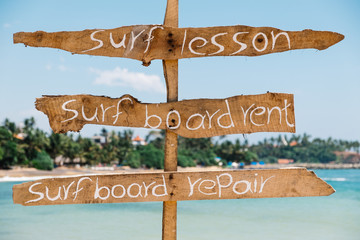 surf lesson
surf board rent
surf board repair